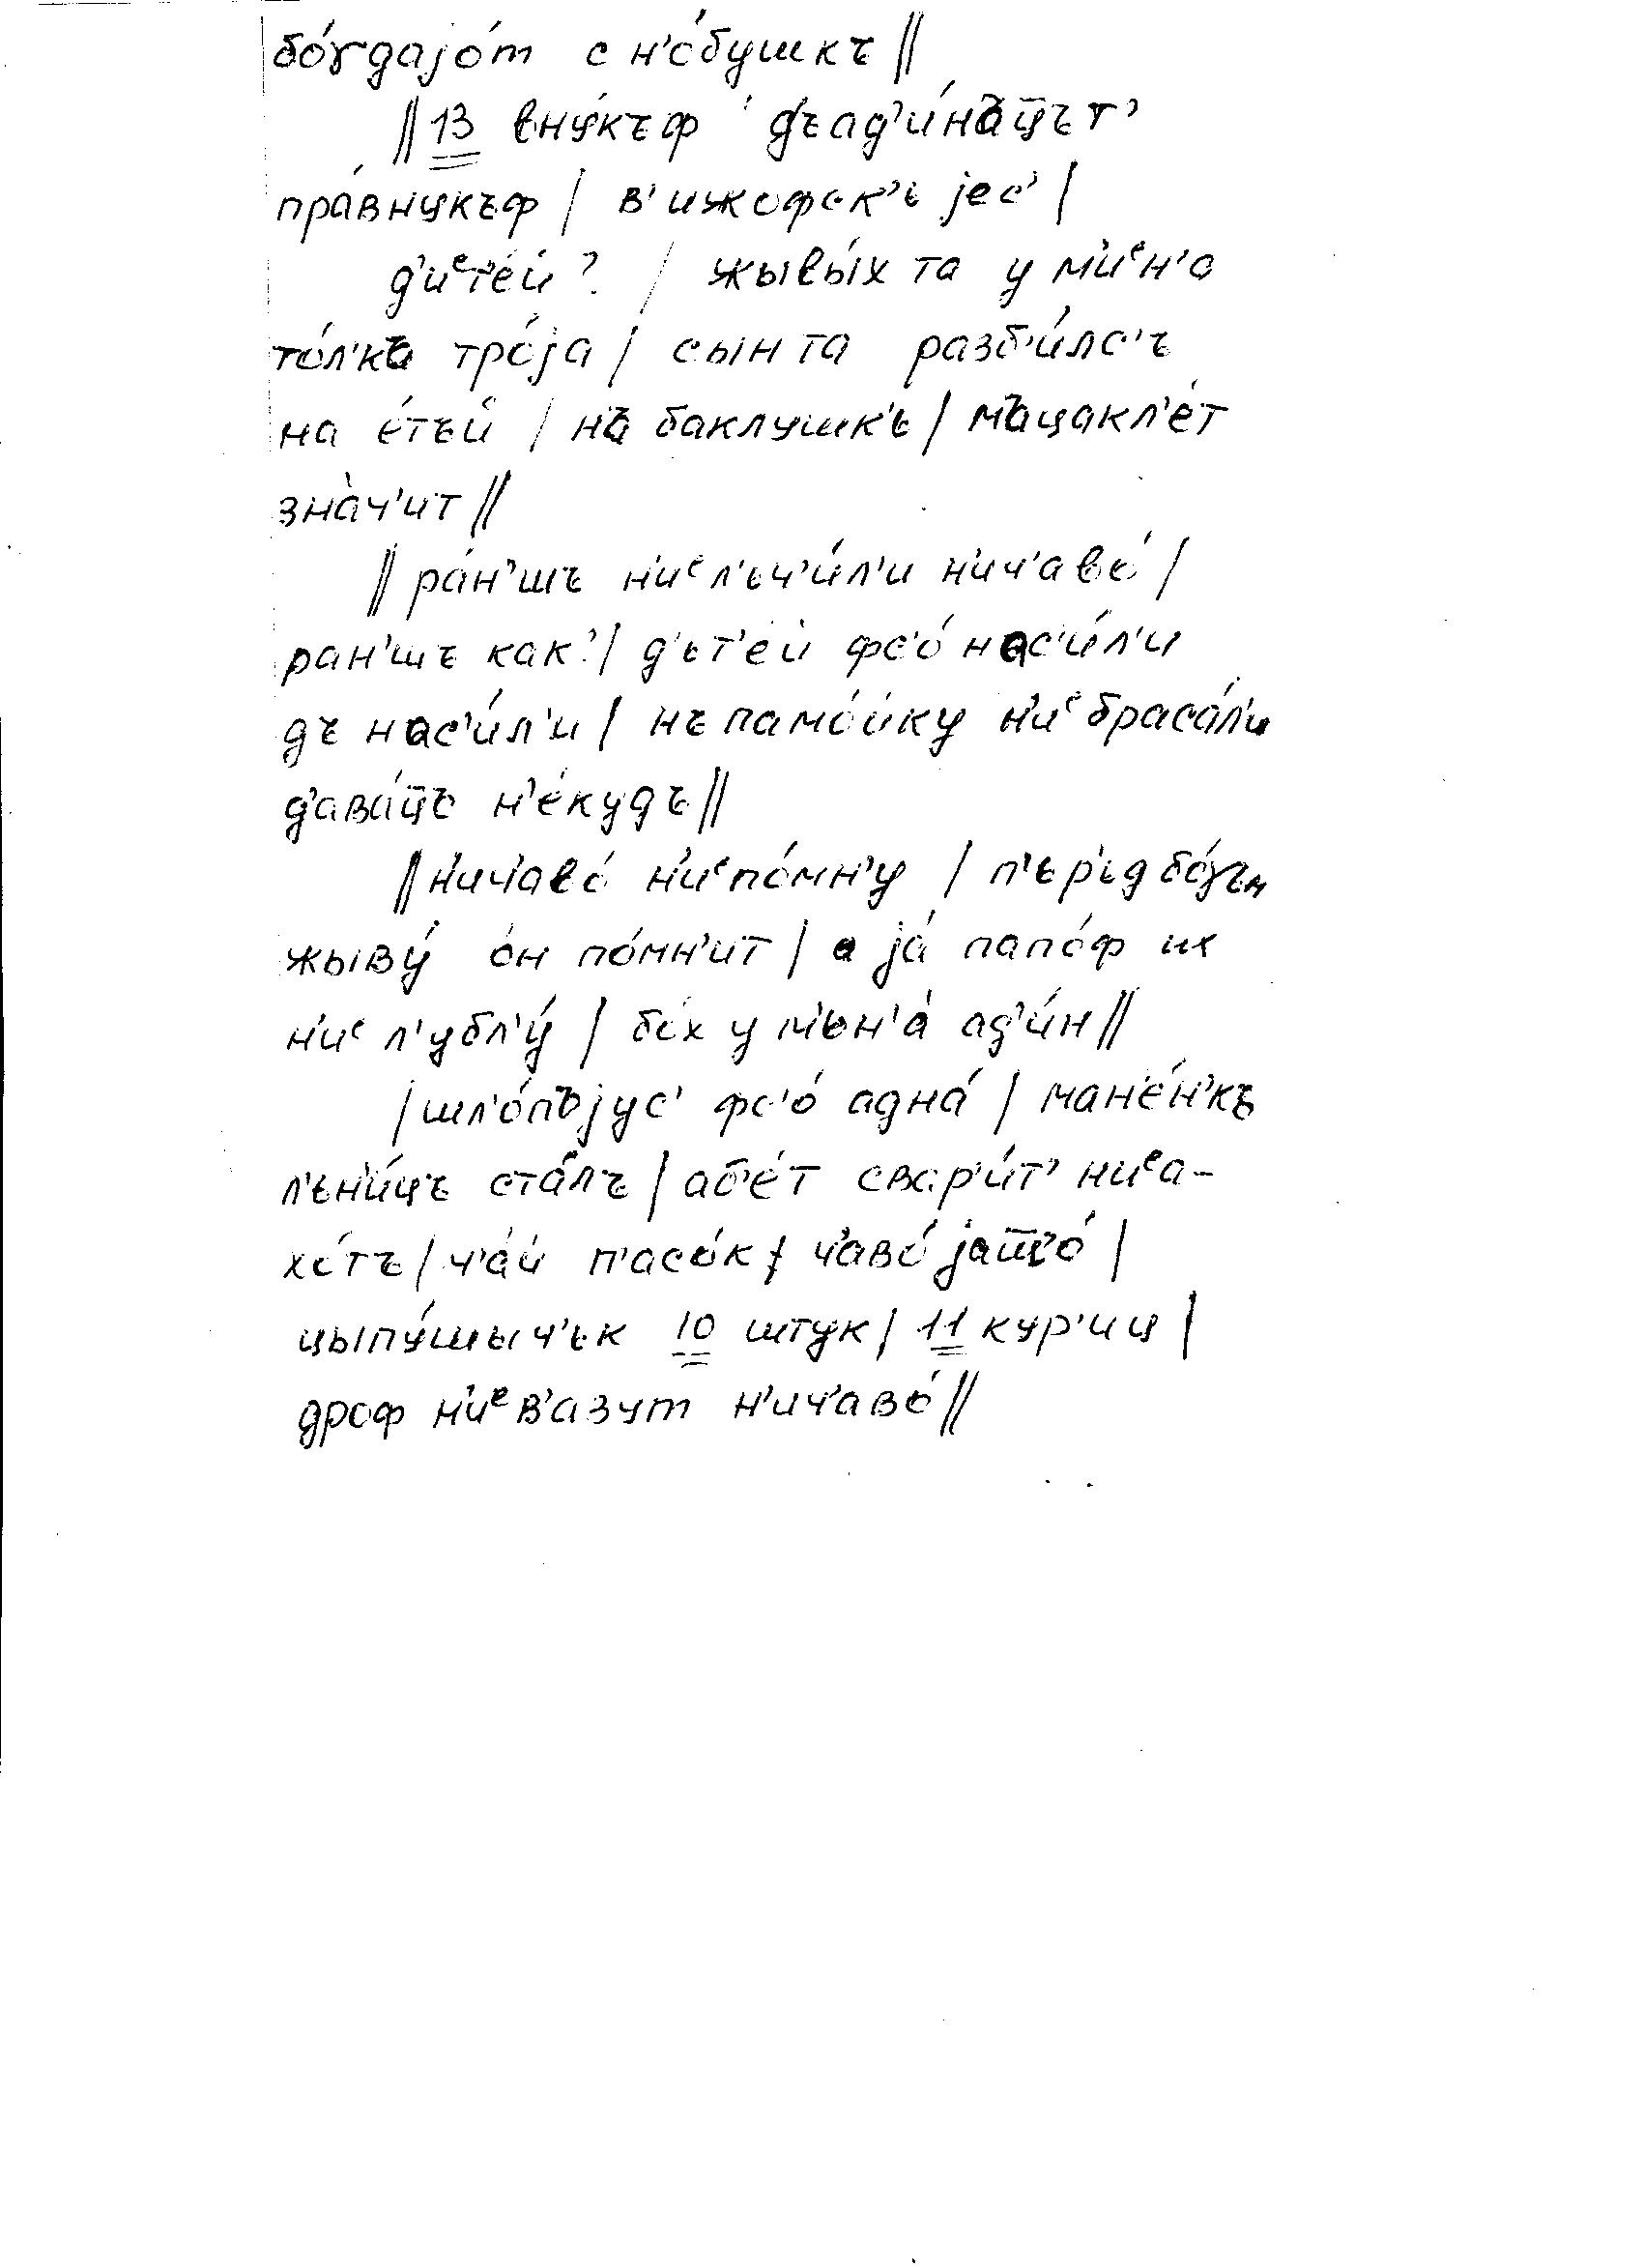 бо́γдаjо́т с н'о́бушкъ ||
|| 13 вну́къф дъад'и́нъц̄ът'
пра́внукъф | в'ижофск'ь jес' |
д'иᵉт'е́й? | жывы́х та у м'иᵉн'о
то́л'къ тро́jа | сын та разб'и́лс'ъ
на е́тъй | на баклушк'ь | мъцакл'е́т
зна́ч'ит ||
|| ра́н'шъ н'иᵉ л'ьч'и́л'и н'ич'аво́ |
ран'шъ как? | д'ьт'е́й фс'о́ нас'и́л'и
дъ нас'и́л'и | нъ памо́йку н'иᵉ браса́л'и
д'ава́ц̄ъ н'е́кудъ ||
|| н'ич'аво́ н'иᵉ по́мн'у | п'ьр'ьд бо́γъм
жыву́ о́н по́мн'ит | а jа́ папо́ф их
н'иᵉ л'убл'у́ | бо́х у м'ьн'а́ ад'и́н ||
| шл'о́пъjус' фс'о́ адна́ | ман'е́н'къ
л'ьн'и́цъ ста́лъ | аб'е́т свар'и́т' ниᵉа-
хо́тъ | ч'а́й п'асо́к | ч'аво́ jаш̄'о́ |
цыпу́шыч'ьк 10 штук | 11 кур'иц |
дроф н'иᵉ в'азут н'ич'аво́ ||